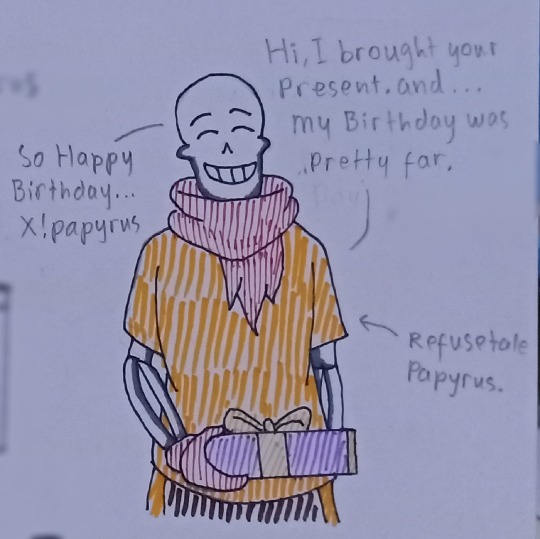 Hi, I brought your
Present. and...
my Birthday was
pretty far.
So Happy
Birthday...
X!papyrus
Refusetale
Papyrus.